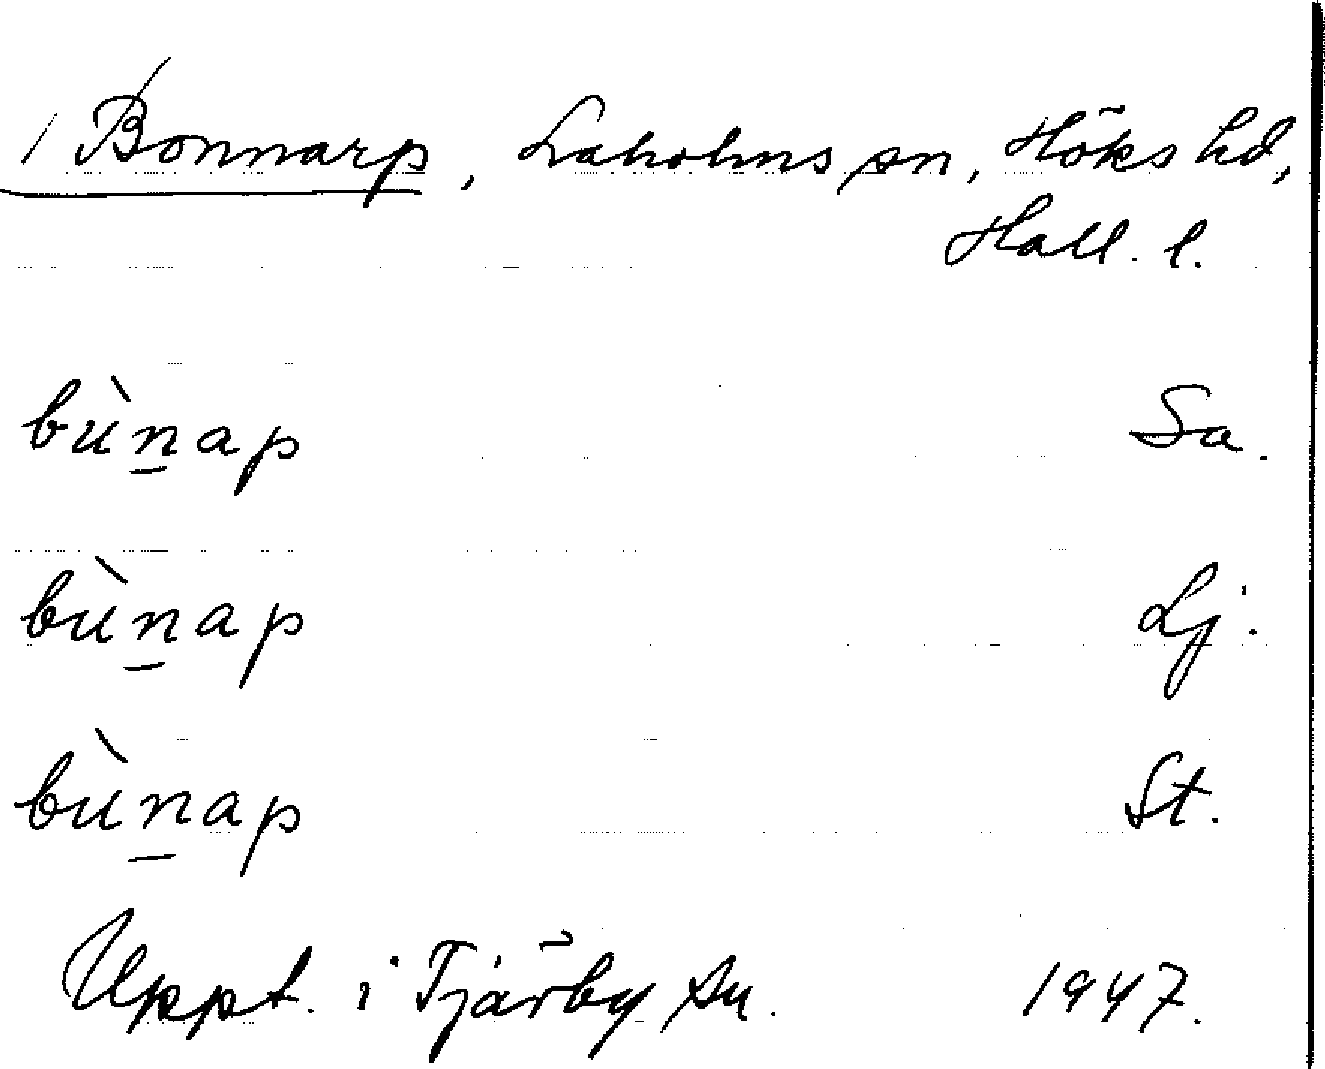 / Bonnarp, Laholms sn, Höks hd,
Hall. l.
bùn̲ap Sa.
bùn̲ap Lj.
bùn̲ap St.
Uppt. i Tjärby sn. 1947.